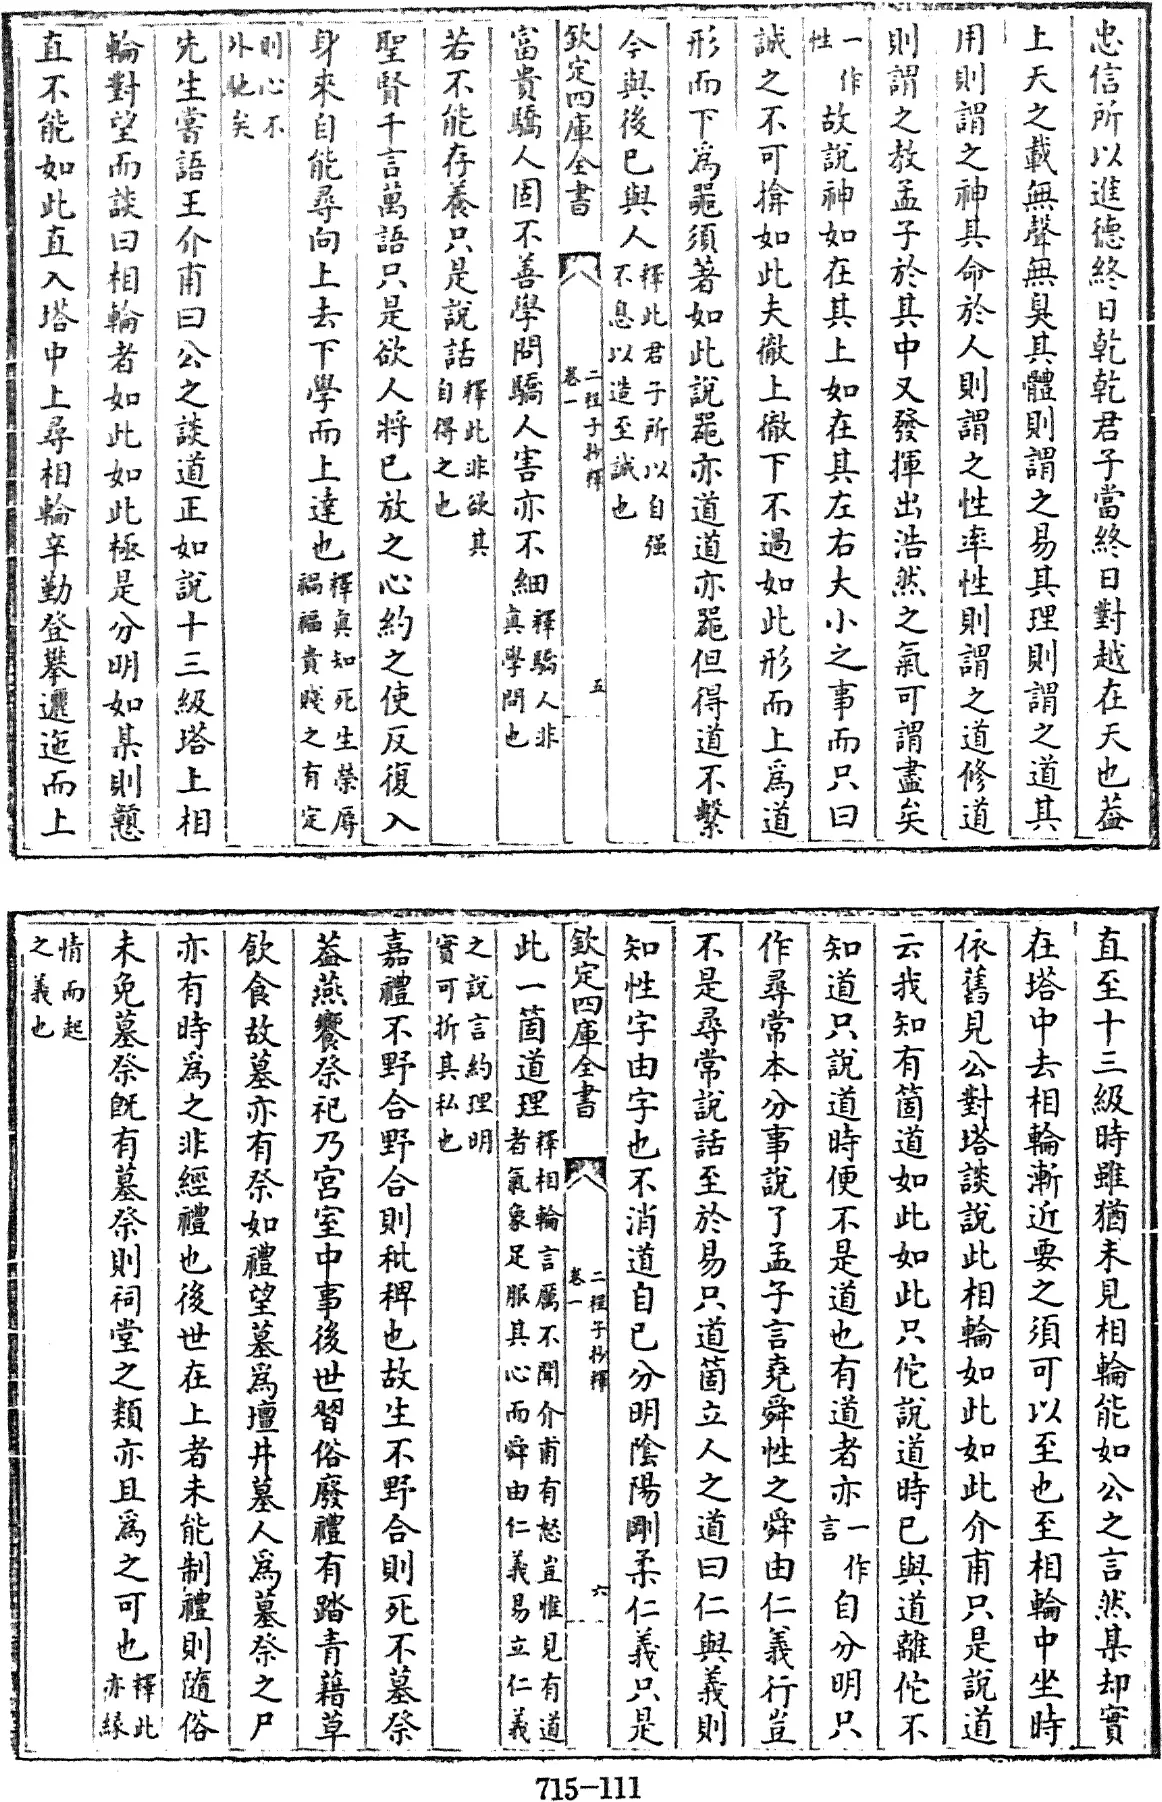 忠信所以進德終日乾乾君子當終日對越在天也葢
上天之載無聲無臭其體則謂之易其理則謂之道其
用則謂之神其命於人則謂之性率性則謂之道修道
則謂之教孟子於其中又發揮出浩然之氣可謂盡矣
一作性故說神如在其上如在其左右大小之事而只曰
誠之不可揜如此夫徹上徹下不過如此形而上為道
形而下為器須著如此說器亦道道亦器但得道不繫
今與後已與人釋此君子所以自强不息以造至誠也
欽定四庫全書 二程子抄釋 卷一 五
富貴驕人固不善學問驕人害亦不細釋驕人非真學問也
若不能存養只是說話釋此非欲其自得之也
聖賢千言萬語只是欲人將已放之心約之使反復入
身來自能尋向上去下學而上達也釋真知死生榮辱禍福貴賤之有定
則心不外馳矣
先生嘗語王介甫曰公之談道正如說十三級塔上相
輪對望而談曰相輪者如此如此極是分明如某則戇
直不能如此直入塔中上尋相輪辛勤登攀邐迤而上
直至十三級時雖猶未見相輪能如公之言然某却實
在塔中去相輪漸近要之須可以至也至相輪中坐時
依舊見公對塔談說此相輪如此如此介甫只是說道
云我知有箇道如此如此只佗說道時已與道離佗不
知道只說道時便不是道也有道者亦一作言自分明只
作尋常本分事說了孟子言堯舜性之舜由仁義行豈
不是尋常說話至於易只道箇立人之道曰仁與義則
知性字由字也不消道自已分明陰陽剛柔仁義只是
欽定四庫全書 二程子抄釋 卷一 六
此一箇道理釋相輪言厲不聞介甫有怒豈惟見有道者氣象足服其心而舜由仁義易立仁義
之說言約理明實可折其私也
嘉禮不野合野合則秕稗也故生不野合則死不墓祭
葢燕饗祭祀乃宮室中事後世習俗廢禮有踏青藉草
飲食故墓亦有祭如禮望墓為壇并墓人為墓祭之尸
亦有時為之非經禮也後世在上者未能制禮則隨俗
未免墓祭既有墓祭則祠堂之類亦且為之可也釋此亦緣
情而起之義也
715-111